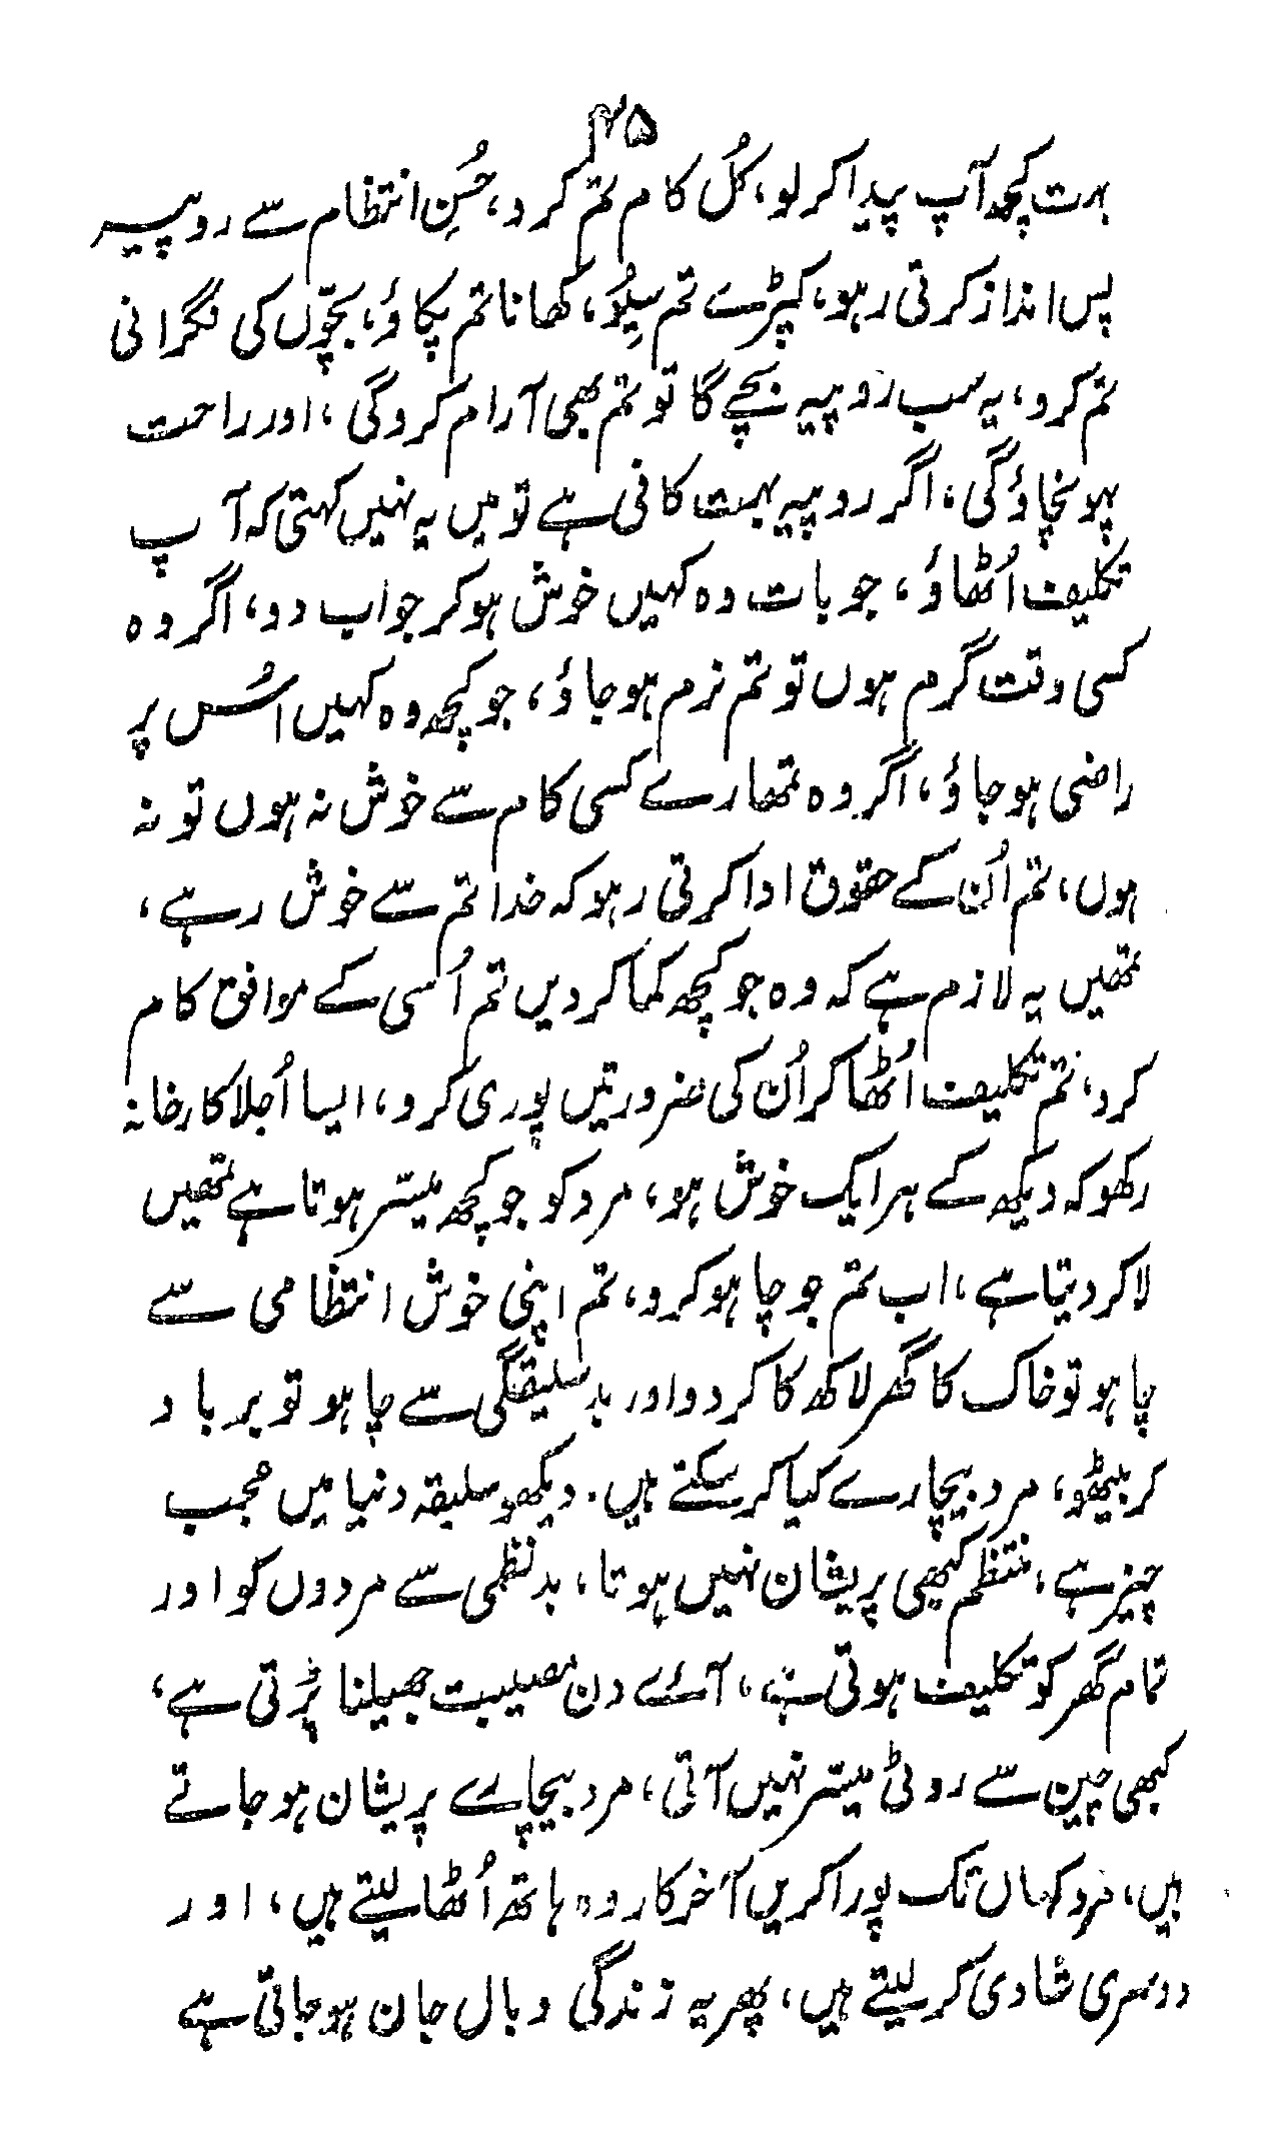 ۲۵
بہت کچھ آپ پیدا کر لو، کُل کام تم کرو، حُسنِ انتظام سے روپیہ
پس انداز کرتی رہو، کپڑے تم سِیُو، کھانا تم پکاؤ، بچّوں کی نگرانی
تم کرو، یہ سب روپیہ بچے گا تو تم بھی آرام کروگی، اور راحت
پہونچاؤگی، اگر روپیہ بہت کافی ہے تو میں یہ نہیں کہتی کہ آپ
تکلیف اُٹھاؤ، جو بات وہ کہیں خوش ہوکر جواب دو، اگر وہ
کسی وقت گرم ہوں تو تم نرم ہوجاؤ، جو کچھ وہ کہیں اُس پر
راضی ہوجاؤ، اگر وہ تمھارے کسی کام سے خوش نہ ہوں تو نہ
ہوں، تم اُن کے حقوق ادا کرتی رہو کہ خدا تم سے خوش رہے،
تمھیں یہ لازم ہے کہ وہ جو کچھ کما کر دیں تم اُسی کے موافق کام
کرو، تم تکلیف اُٹھا کر اُن کی ضرورتیں پوری کرو، ایسا اُجلا کارخانہ
رکھو کہ دیکھ کے ہر ایک خوش ہو، مرد کو جو کچھ میسّر ہوتا ہے تمھیں
لاکر دیتا ہے، اب تم جو چاہو کرو، تم اپنی خوش انتظامی سے
چاہو تو خاک کا گھر لاکھ کا کر دو اور بدسلیقگی سے چاہو تو برباد
کر بیٹھو، مرد بیچارے کیا کر سکتے ہیں۔ دیکھو سلیقہ دنیا میں عجب
چیز ہے، منتظم کبھی پریشان نہیں ہوتا، بدنظمی سے مردوں کو اور
تمام گھر کو تکلیف ہوتی ہے، آئے دن مصیبت جھیلنا پڑتی ہے،
کبھی چین سے روٹی میسّر نہیں آتی، مرد بیچارے پریشان ہوجاتے
ہیں، مرد کہاں تک پورا کریں آخر کار وہ ہاتھ اُٹھا لیتے ہیں، اور
دوسری شادی کر لیتے ہیں، پھر یہ زندگی وبال جان ہوجاتی ہے